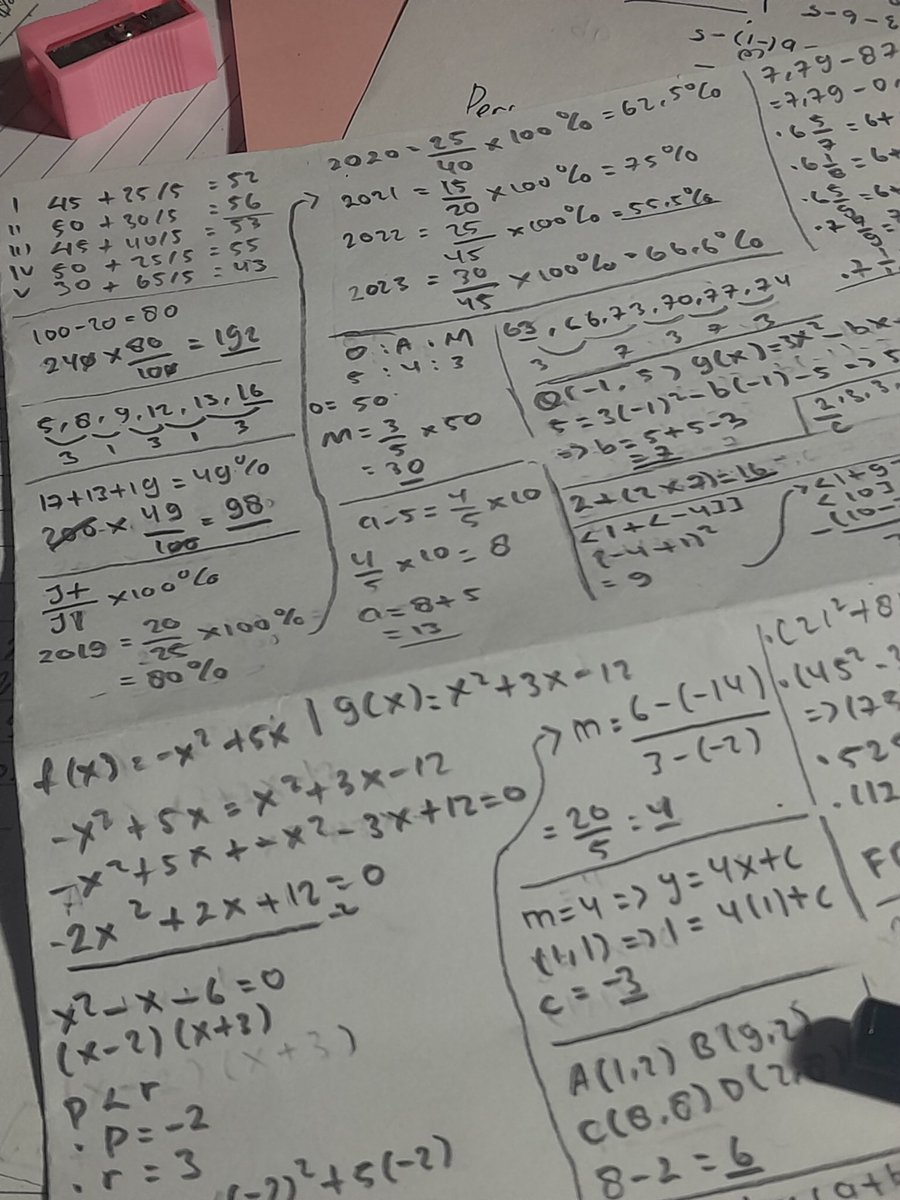 I 45 + 25/5 = 52
II 50 + 30/5 = 56
III 45 + 40/5 = 53
IV 50 + 25/5 = 55
V 30 + 65/5 = 43
100-20=80
240 × 80/100 = 192
5, 8, 9, 12, 13, 16
3 1 3 1 3
17+13+19=49%
200 × 49/100 = 98
×100%
2019 = 20/25 ×100%
= 80%
2020 - 25/40 ×100% = 62,5%
2021 = 15/20 ×100% = 75%
2022 = 25/45 ×100% = 55,5%
2023 = 30/45 ×100% = 66,6%
O : A : M
5 : 4 : 3
O = 50
M = 3/5 × 50
= 30
a-5 = 4/5 × 10
4/5 × 10 = 8
a = 8+5
= 13
63, 66, 73, 70, 77, 74
3 7 3 7 3
Q(-1, 5) g(x)=3x² - bx -
5=3(-1)² - b(-1) - 5 => 5
=> b = 5+5-3
= 7
2+(2×7)=16
<1+<-4]]
(-4+1)²
= 9
<1+9-
<10]
(10-
-(-1)-5
3-6-5
7,79-87
=7,79-0,
.6 5/7 = 6+
.6 1/8 = 6+
2,3,3,
f(x) = -x² + 5x | g(x) = x² + 3x - 12
-x² + 5x = x² + 3x - 12
-x² + 5x + -x² - 3x + 12 = 0
-2x² + 2x + 12 = 0
-2
x² - x - 6 = 0
(x-2)(x+3)
(x+3)
p < r
. p = -2
. r = 3
(-2)² + 5(-2)
m = 6-(-14) / 3-(-2)
= 20/5 = 4
m=4 => y = 4x+c
(1,1) => 1 = 4(1)+c
c = -3
A(1,2) B(9,2)
C(8,8) D(2,
8-2 = 6
.(2)²+8
.(45²-
=> (73
.529
.(12